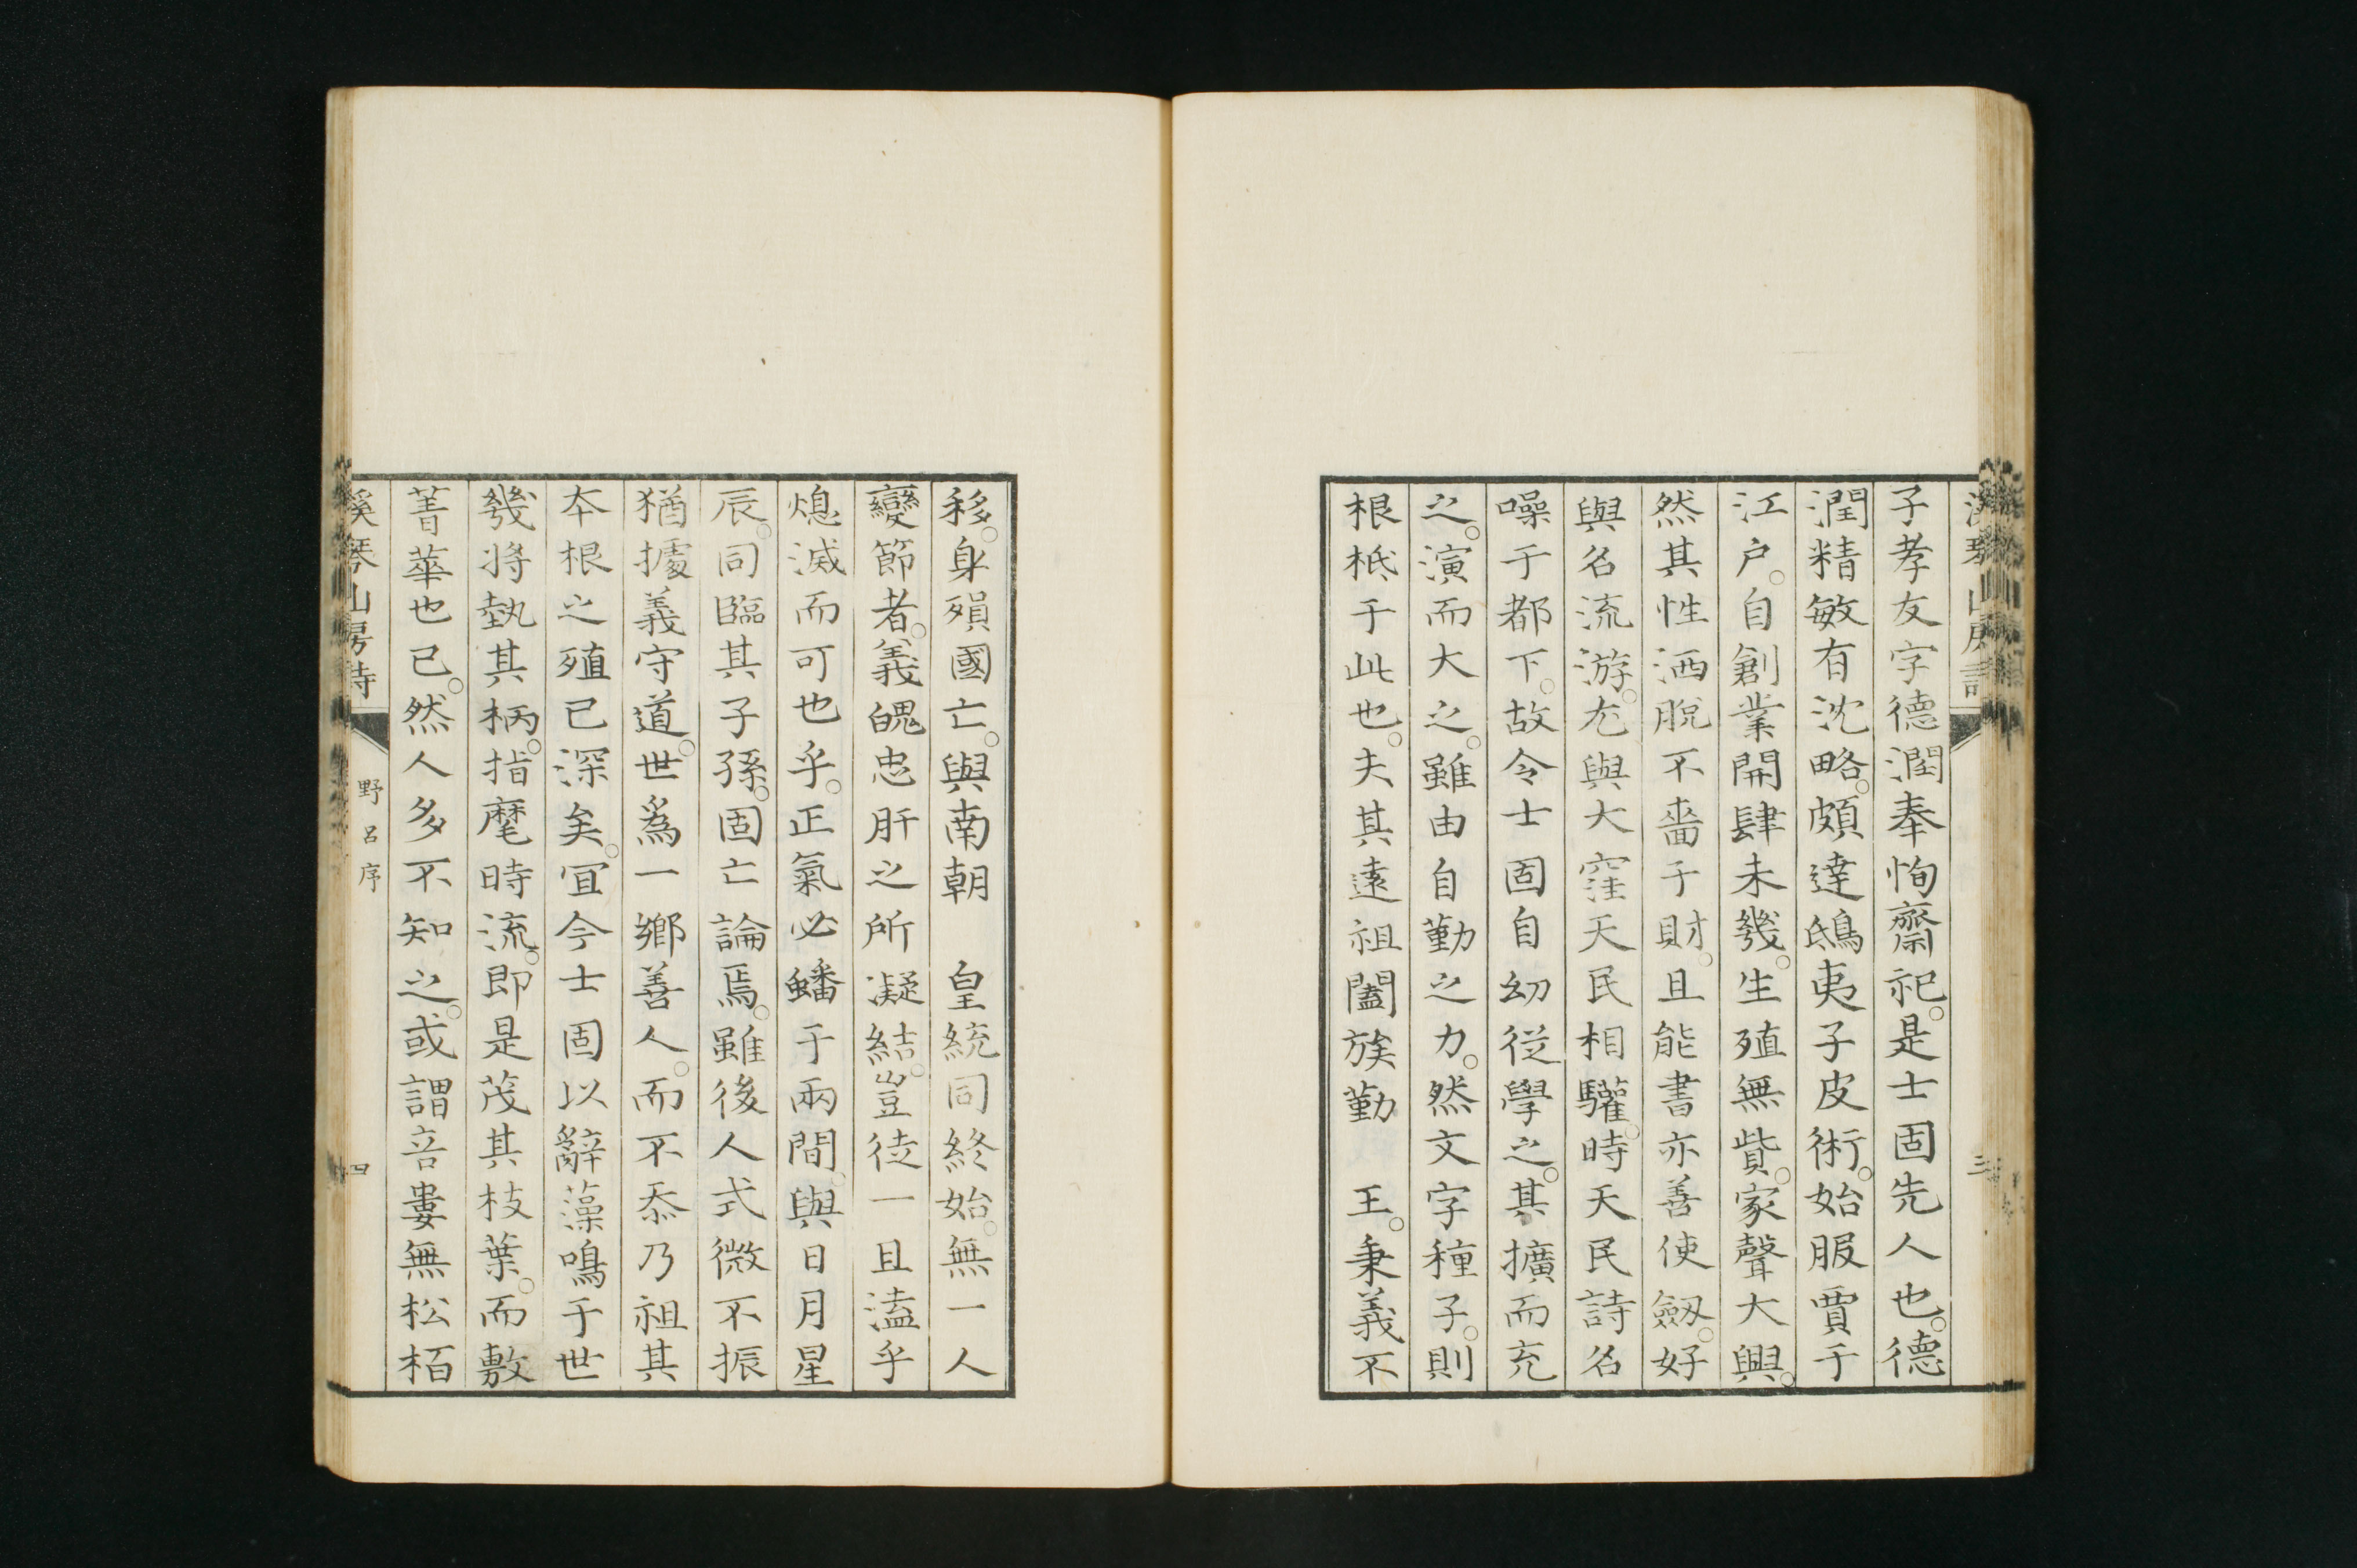 子孝友字德潤奉恂齋祀。是士固先人也。德
潤精敏有沈略。頗達鴟夷子皮術。始服賈于
江戶。自創業開肆未幾。生殖無貲。家聲大興。
然其性洒脫不嗇于財。且能書亦善使劔。好
與名流游。尤與大窪天民相驩。時天民詩名
噪于都下。故令士固自幼從學之。其擴而充
之。演而大之。雖由自勤之力。然文字種子。則
根柢于此也。夫其遠祖闔族勤 王。秉義不
移。身殞國亡。與南朝 皇統同終始。無一人
變節者。義魄忠肝之所凝結。豈徒一且溘乎
熄滅而可也乎。正氣必蟠于兩間。與日月星
辰。同臨其子孫。固亡論焉。雖後人式微不振
猶據義守道。世爲一鄉善人。而不忝乃祖其
本根之殖已深矣。宜今士固以辭藻鳴于世
幾將執其柄。指麾時流。即是茂其枝葉。而敷
菁華也已。然人多不知之。或謂咅婁無松栢
溪琴山房詩
野呂序
四